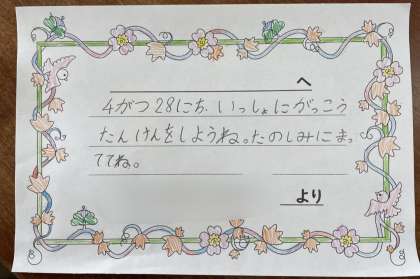 へ
4がつ28にち、いっしょにがっこう
たんけんをしようね。たのしみにまっ
ててね。
より